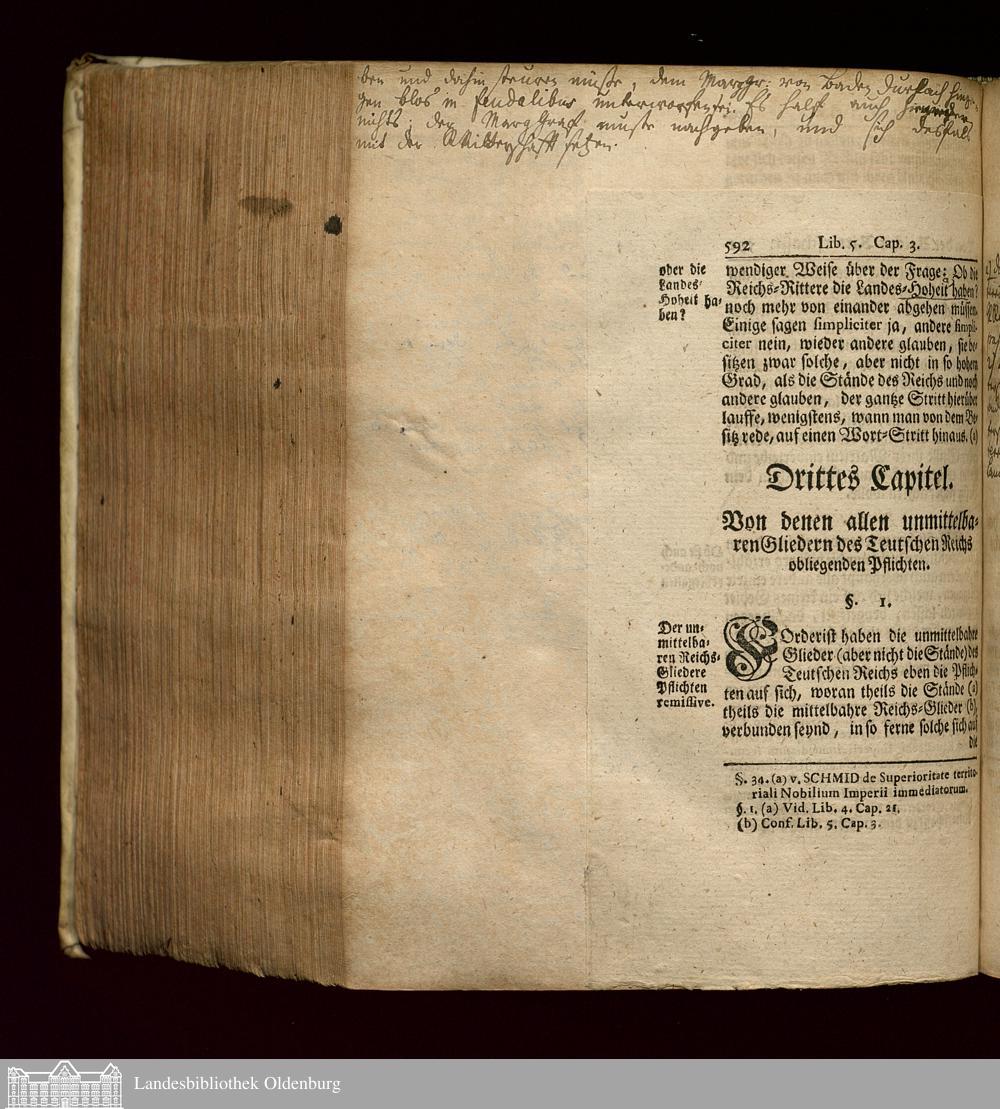 ben und dahin steuren müste, dem Marggr. von Baden Durlach
gen blos in feudalibus unterworffen sei. Es half auch
nichts; der Marg Graf muste nachgeben, und sich desfals
mit der Ritterschafft setzen.
592 Lib. 5. Cap. 3.
oder die
Landes-
Hoheit ha-
ben?
wendiger Weise über der Frage: Ob die
Reichs-Rittere die Landes-Hoheit haben?
noch mehr von einander abgehen müssen.
Einige sagen simpliciter ja, andere simpli-
citer nein, wieder andere glauben, sie be-
sitzen zwar solche, aber nicht in so hohem
Grad, als die Stände des Reichs und noch
andere glauben, der gantze Stritt hierüber
lauffe, wenigstens, wann man von dem Be-
sitz rede, auf einen Wort-Stritt hinaus. (a)
Drittes Capitel.
Von denen allen unmittelba-
ren Gliedern des Teutschen Reichs
obliegenden Pflichten.
§. 1.
Der un-
mittelba-
ren Reichs-
Gliedere
Pflichten
remissive.
Förderist haben die unmittelbahre
Glieder (aber nicht die Stände) des
Teutschen Reichs eben die Pflich-
ten auf sich, woran theils die Stände (a)
theils die mittelbahre Reichs-Glieder (b)
verbunden seynd, in so ferne solche sich auf
die
§. 34. (a) v. SCHMID de Superioritate territo-
riali Nobilium Imperii immediatorum.
§. 1. (a) Vid. Lib. 4. Cap. 21.
(b) Conf. Lib. 5. Cap. 3.
Landesbibliothek Oldenburg